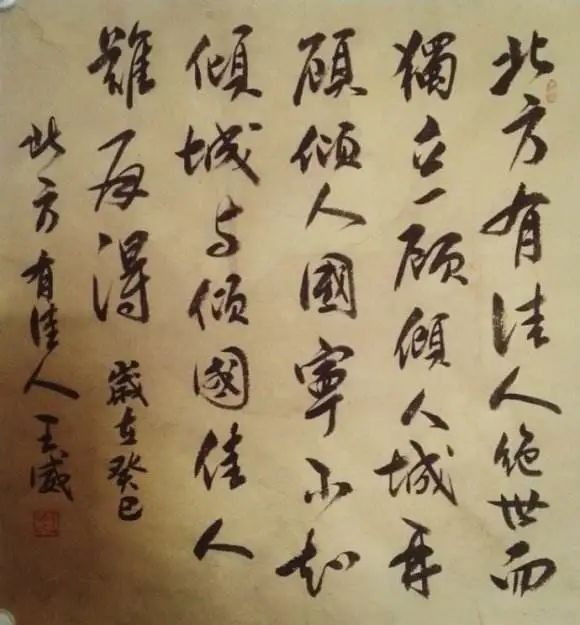 北方有佳人絶世而
獨立一顧傾人城再
顧傾人國寧不知
傾城与傾國佳人
難再得 歲在癸巳
北方有佳人 王威